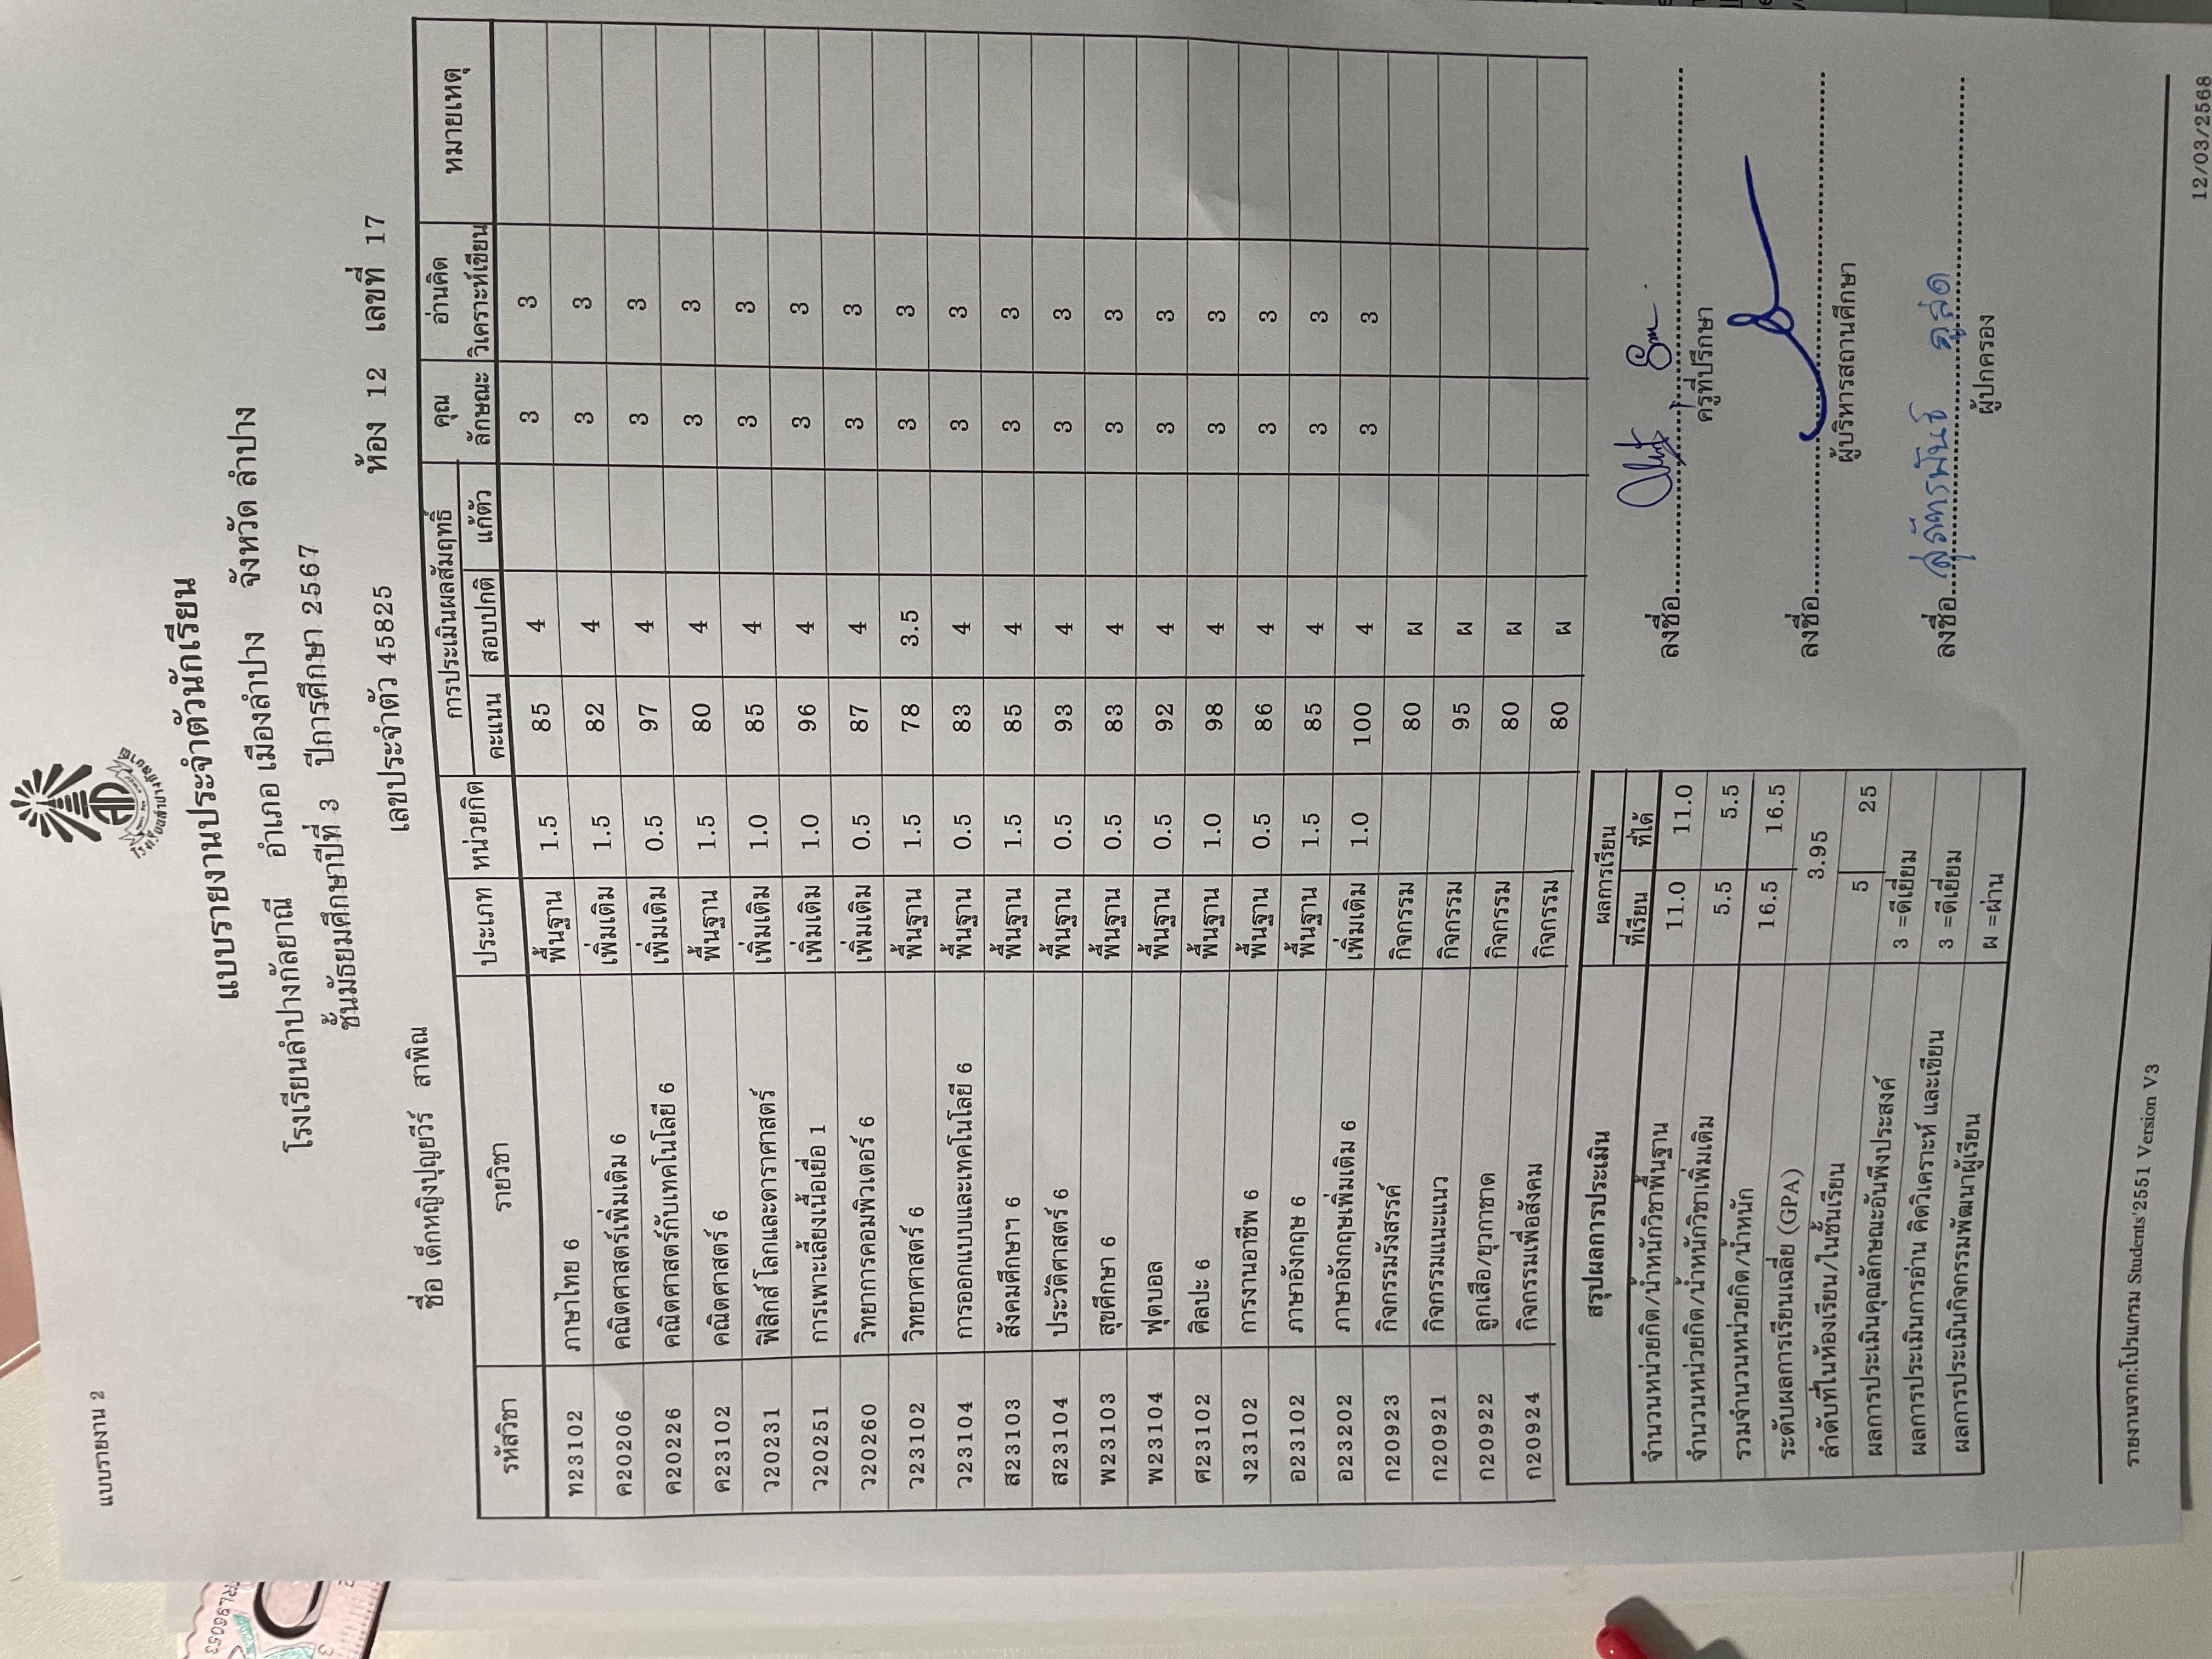 แบบรายงาน 2
โรงเรียนลำปางกัลยาณี
แบบรายงานประจำตัวนักเรียน
โรงเรียนลำปางกัลยาณี อำเภอ เมืองลำปาง จังหวัด ลำปาง
ชั้นมัธยมศึกษาปีที่ 3 ปีการศึกษา 2567
ชื่อ เด็กหญิงปุญยวีร์ สาพิณ เลขประจำตัว 45825 ห้อง 12 เลขที่ 17
รหัสวิชา รายวิชา ประเภท หน่วยกิต การประเมินผลสัมฤทธิ์ คุณลักษณะ อ่านคิดวิเคราะห์เขียน หมายเหตุ
คะแนน สอบปกติ แก้ตัว
ท23102 ภาษาไทย 6 พื้นฐาน 1.5 85 4 3 3
ค20206 คณิตศาสตร์เพิ่มเติม 6 เพิ่มเติม 1.5 82 4 3 3
ค20226 คณิตศาสตร์กับเทคโนโลยี 6 เพิ่มเติม 0.5 97 4 3 3
ค23102 คณิตศาสตร์ 6 พื้นฐาน 1.5 80 4 3 3
ว20231 ฟิสิกส์ โลกและดาราศาสตร์ เพิ่มเติม 1.0 85 4 3 3
ว20251 การเพาะเลี้ยงเนื้อเยื่อ 1 เพิ่มเติม 1.0 96 4 3 3
ว20260 วิทยาการคอมพิวเตอร์ 6 เพิ่มเติม 0.5 87 4 3 3
ว23102 วิทยาศาสตร์ 6 พื้นฐาน 1.5 78 3.5 3 3
ว23104 การออกแบบและเทคโนโลยี 6 พื้นฐาน 0.5 83 4 3 3
ส23103 สังคมศึกษาฯ 6 พื้นฐาน 1.5 85 4 3 3
ส23104 ประวัติศาสตร์ 6 พื้นฐาน 0.5 93 4 3 3
พ23103 สุขศึกษา 6 พื้นฐาน 0.5 83 4 3 3
พ23104 ฟุตบอล พื้นฐาน 0.5 92 4 3 3
ศ23102 ศิลปะ 6 พื้นฐาน 1.0 98 4 3 3
ง23102 การงานอาชีพ 6 พื้นฐาน 0.5 86 4 3 3
อ23102 ภาษาอังกฤษ 6 พื้นฐาน 1.5 85 4 3 3
อ23202 ภาษาอังกฤษเพิ่มเติม 6 เพิ่มเติม 1.0 100 4 3 3
ก20923 กิจกรรมรังสรรค์ กิจกรรม 80 ผ
ก20921 กิจกรรมแนะแนว กิจกรรม 95 ผ
ก20922 ลูกเสือ/ยุวกาชาด กิจกรรม 80 ผ
ก20924 กิจกรรมเพื่อสังคม กิจกรรม 80 ผ
สรุปผลการประเมิน ผลการเรียน
ที่เรียน ที่ได้
จำนวนหน่วยกิต/น้ำหนักวิชาพื้นฐาน 11.0 11.0
จำนวนหน่วยกิต/น้ำหนักวิชาเพิ่มเติม 5.5 5.5
รวมจำนวนหน่วยกิต/น้ำหนัก 16.5 16.5
ระดับผลการเรียนเฉลี่ย (GPA) 3.95
ลำดับที่ในห้องเรียน/ในชั้นเรียน 5 25
ผลการประเมินคุณลักษณะอันพึงประสงค์ 3 =ดีเยี่ยม
ผลการประเมินการอ่าน คิดวิเคราะห์ และเขียน 3 =ดีเยี่ยม
ผลการประเมินกิจกรรมพัฒนาผู้เรียน ผ =ผ่าน
ลงชื่อ
ครูที่ปรึกษา
ลงชื่อ
ผู้บริหารสถานศึกษา
ลงชื่อ
ผู้ปกครอง
รายงานจาก:โปรแกรม Students'2551 Version V3
12/03/2568